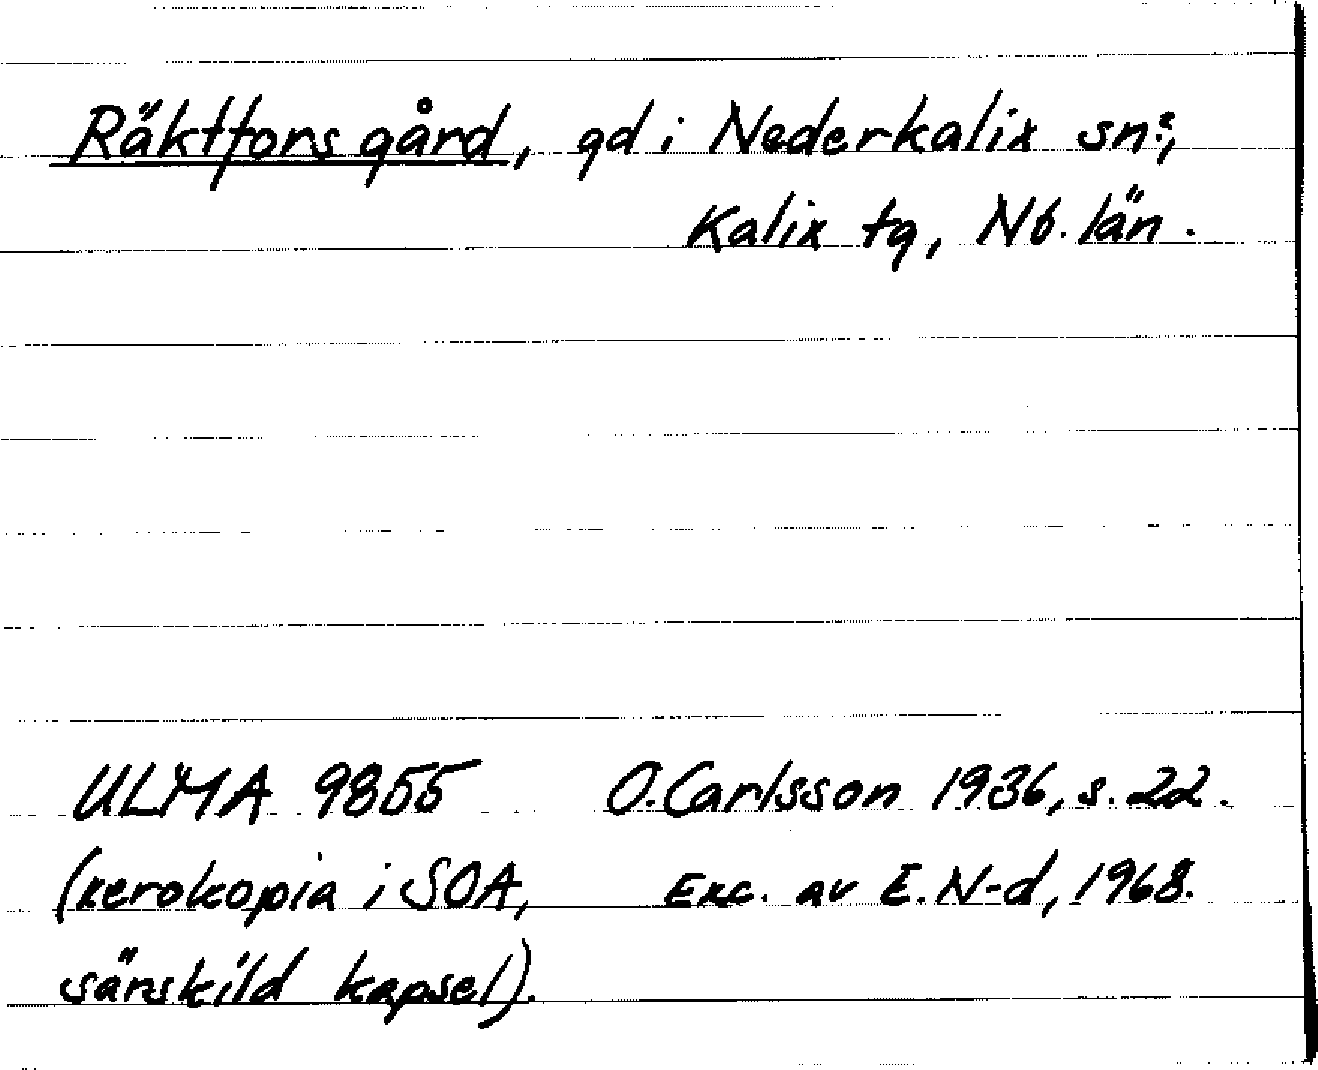 Räktfors gård, gd i Nederkalix sn?,
Kalix tg, Nb. län.
ULMA 9855 O. Carlsson 1936, s. 22.
(xerokopia i SOA, Exc. av E. N-d, 1968.
särskild kapsel).